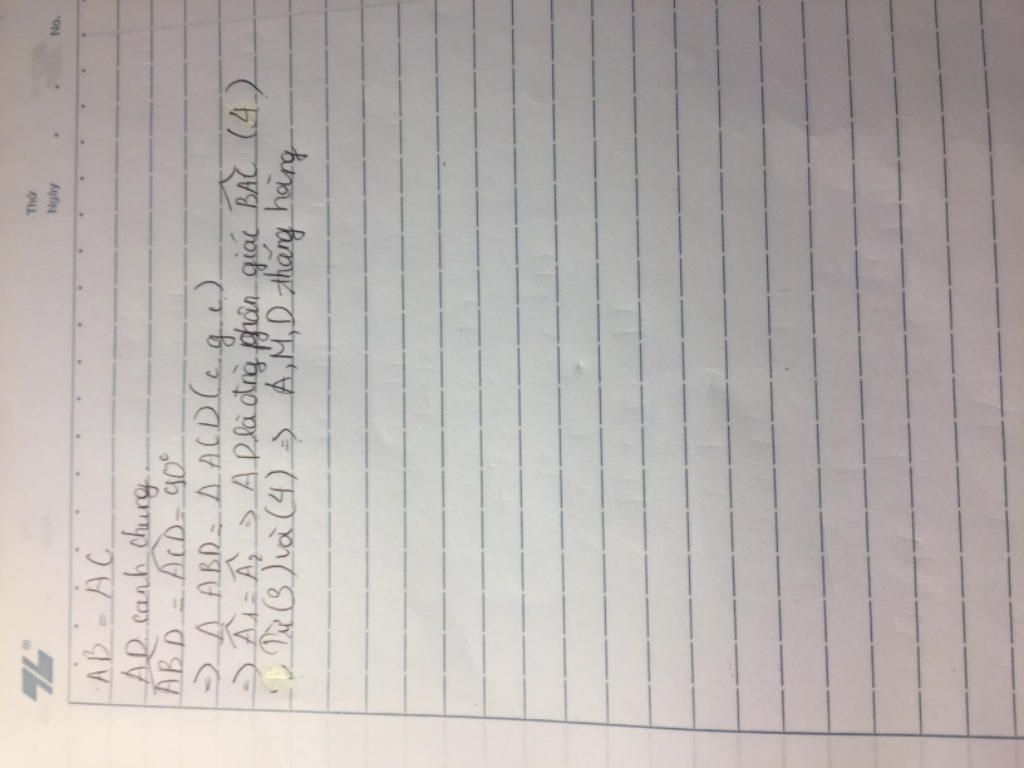 TL®
Thứ
Ngày
No.
AB = AC
AD cạnh chung
ABD = ACD = 90°
=> Δ ABD = Δ ACD (c g c)
=> A1 = A2 => AD là đường phân giác BAC (4)
Từ (3) và (4) => A, M, D thẳng hàng